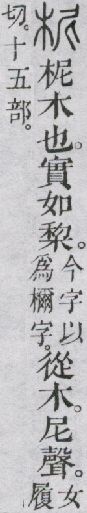 柅柅木也。實如棃。今字以爲檷字。從木。尼聲。女履
切。十五部。